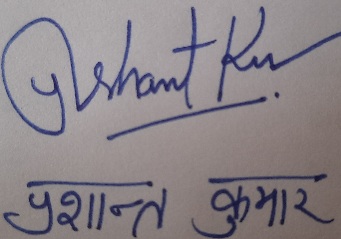 Prshant Ku.
प्रशान्त कुमार